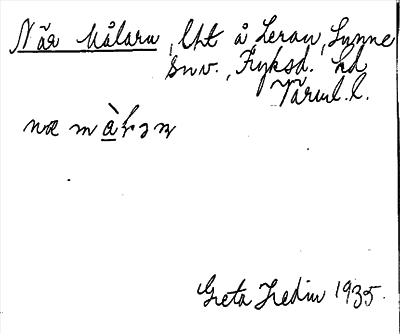 När Målaru, Utt å Leran, Sunne
snv., Fryksd. hd
Värml. l.
næ màlaɲ
Greta Hedin 1935.